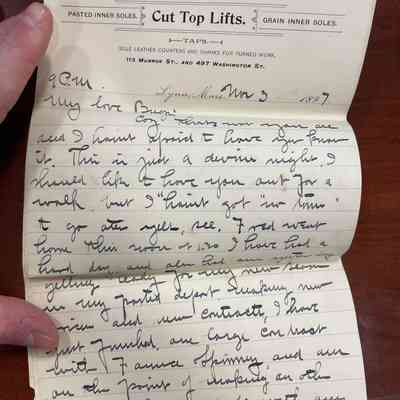 PASTED INNER SOLES.
Cut Top Lifts.
GRAIN INNER SOLES.
TAPS.
SOLE LEATHER COUNTERS AND SHANKS FOR TURNED WORK.
113 MUNROE ST., AND 497 WASHINGTON ST.
Lynn, Mass. Nov 3 1897
9 P.M.
My love
now you are
and I haint afraid to have you know
it. This is just a devine night. I
should like to have you out for a
walk but I "haint got "no time"
to go see. Fred went
home this noon at I have had a
hard day and also had
getting ready for my new
in my pasted depart. Making new
prices and new contracts, I have
just finished one large contract
with and am
on the point of making an other